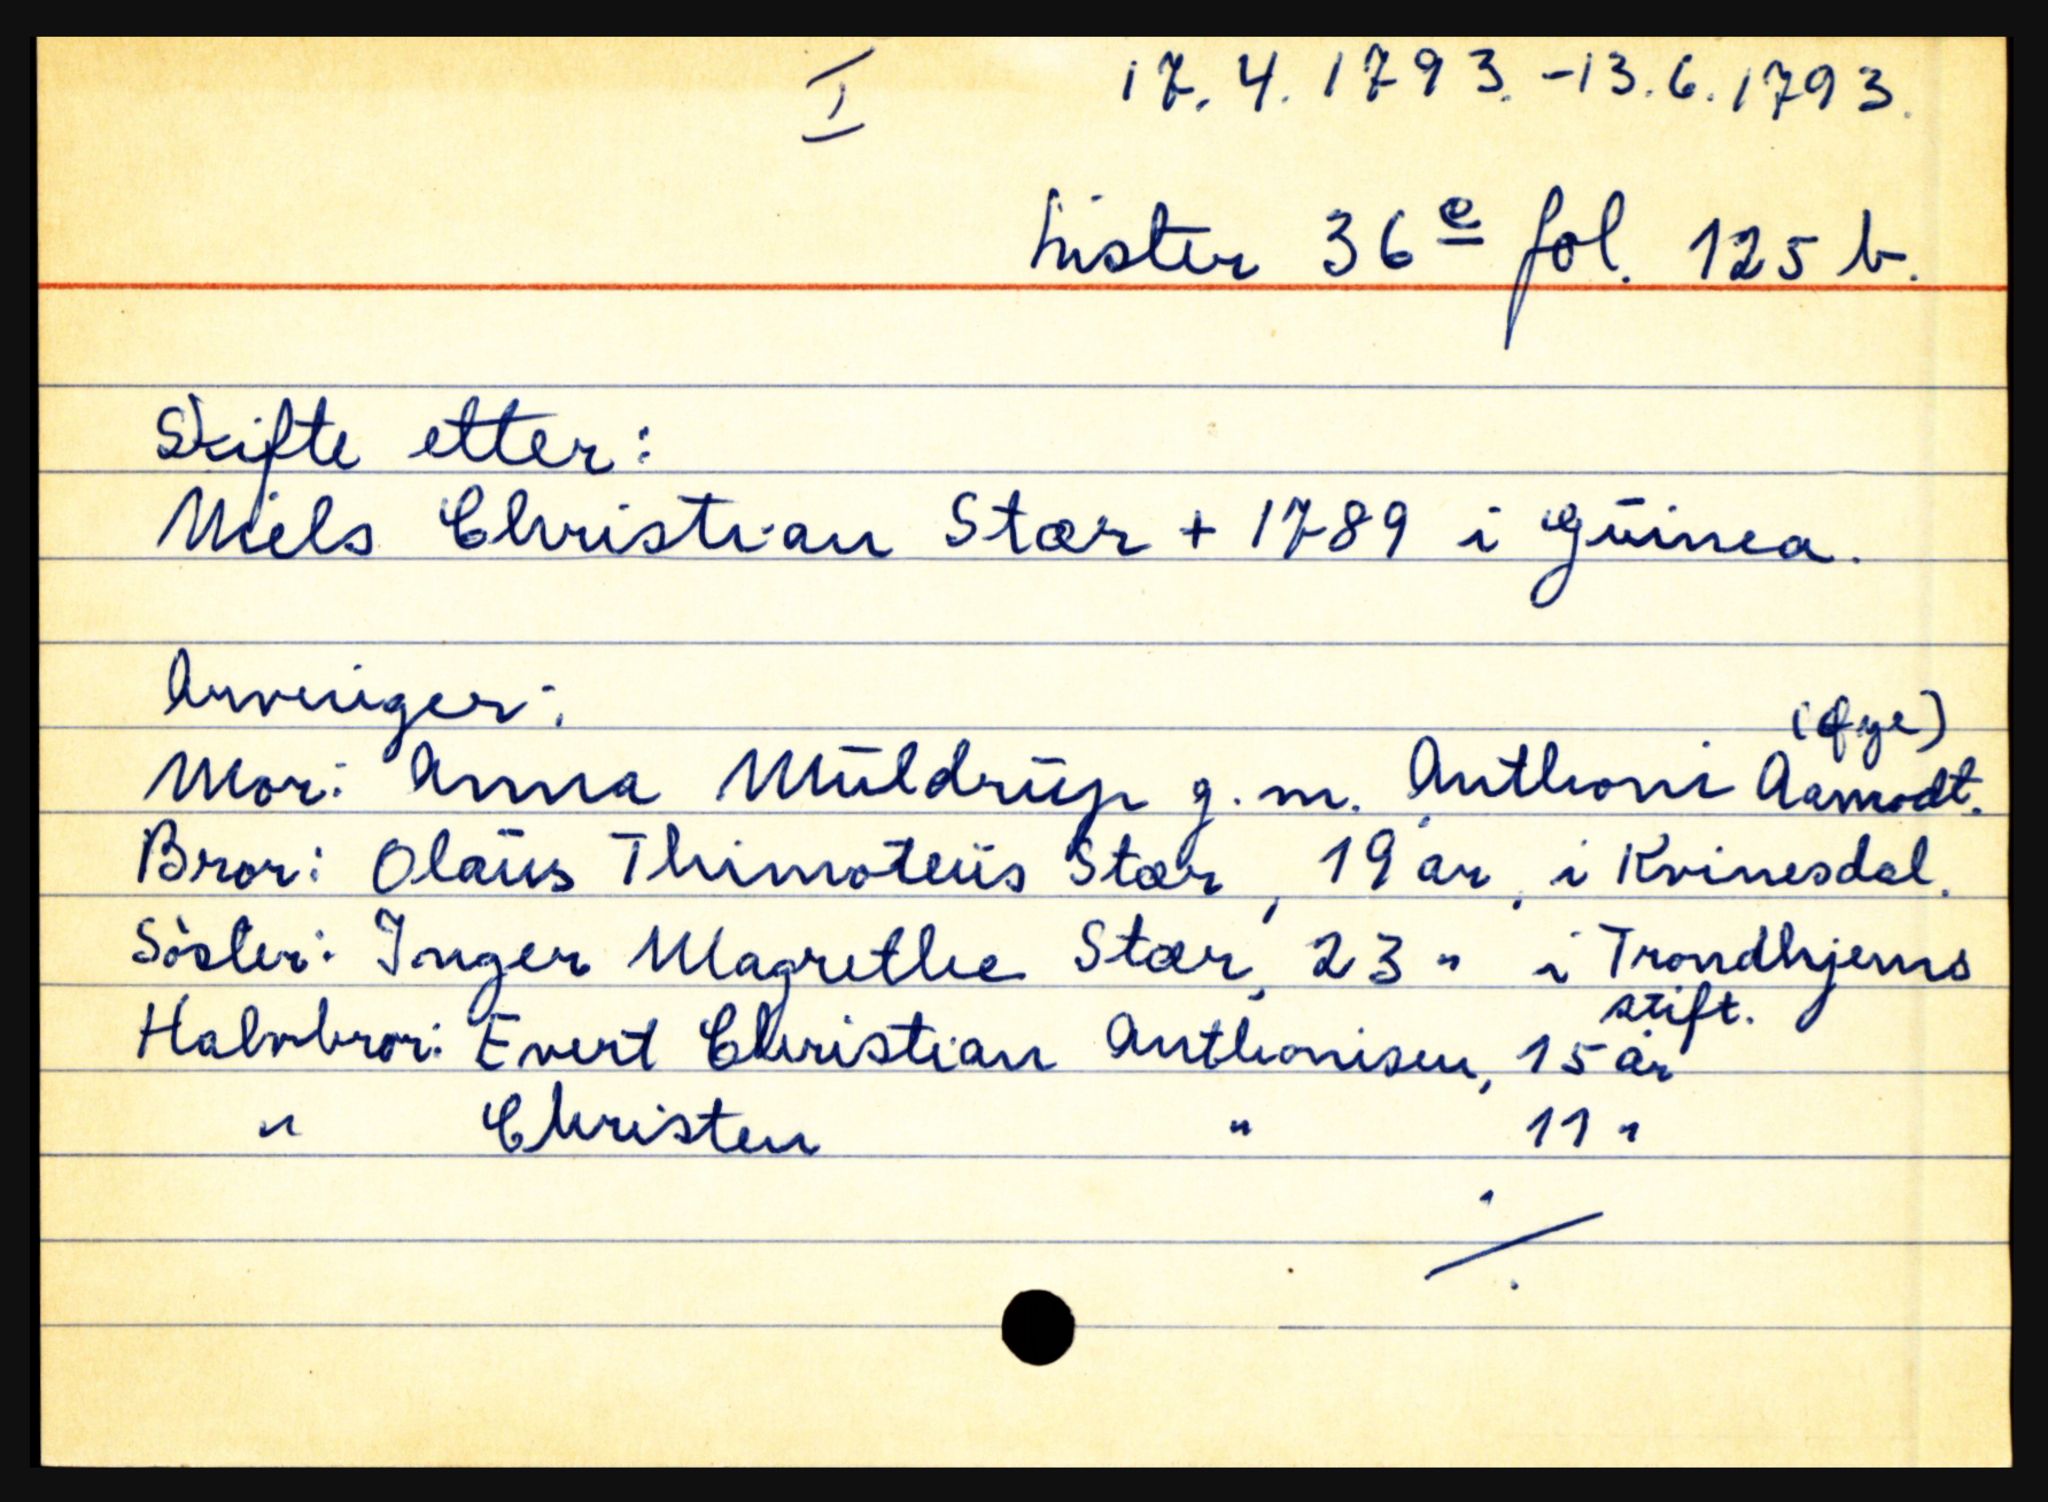 I 17.4.1793.-13.6.1793.
Lister 36e fol. 125 b.
Skifte etter:
Niels Christian Stær + 1789 i Gūinea.
Arvinger:
(Øye)
Mor: Anna Mūldrūp g.m. Anthoni Aamodt.
Bror: Olaūs Thimoteūs Stær, 19 år, i Kvinesdal.
Söster: Inger Magrethe Stær, 23 " i Trondhjems
stift.
Halvbror: Evert Christian Anthonisen, 15 år
" Christen " 11 "